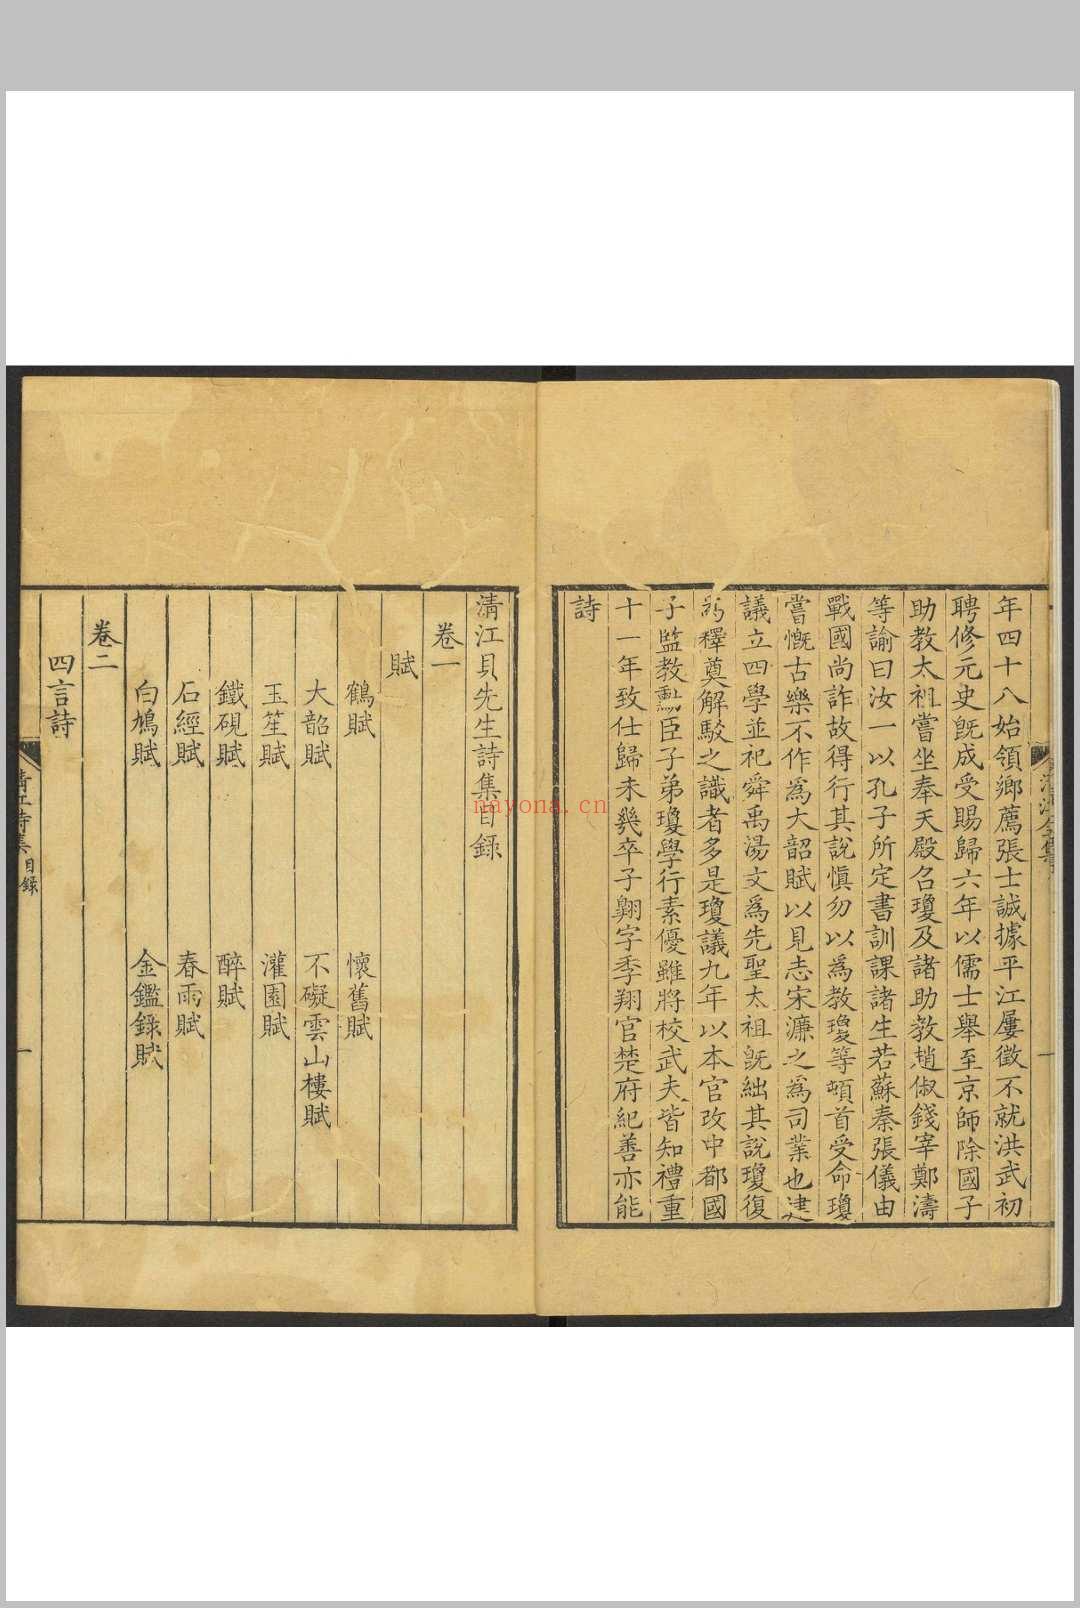 年四十八始領鄉薦張士誠據平江屢徵不就洪武初
聘修元史既成受賜歸六年以儒士舉至京師除國子
助教太祖嘗坐奉天殿召瓊及諸助教趙俶錢宰鄭濤
等諭曰汝一以孔子所定書訓課諸生若蘇秦張儀由
戰國尚詐故得行其說慎勿以為教瓊等頓首受命瓊
嘗慨古樂不作為大韶賦以見志宋濂之為司業也建
議立四學並祀舜禹湯文為先聖太祖既絀其說瓊復
為釋奠解駁之識者多是瓊議九年以本官改中都國
子監教勳臣子弟瓊學行素優雖將校武夫皆知禮重
十一年致仕歸未幾卒子翺字季翔官楚府紀善亦能
詩
一
清江貝先生詩集目錄
卷一
賦
鶴賦 懷舊賦
大韶賦 不礙雲山樓賦
玉笙賦 灌園賦
鐵硯賦 醉賦
石經賦 春雨賦
白鳩賦 金鑑錄賦
卷二
四言詩
清江詩集 目錄 一
nayona.cn